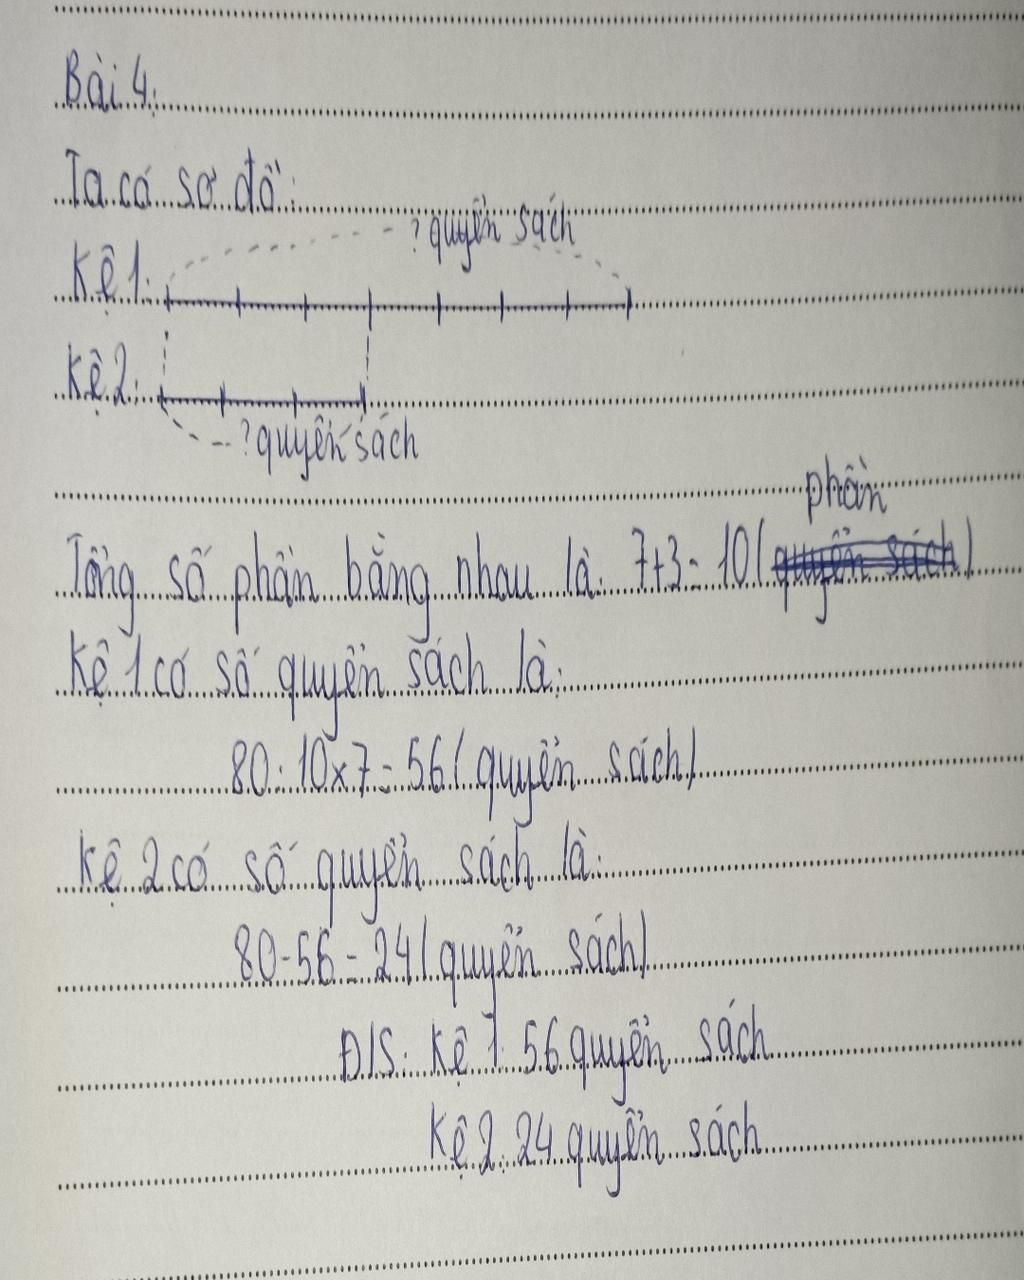 Bài 4:
Ta có sơ đồ:
? quyển sách
Kệ 1:
Kệ 2:
? quyển sách
phần
Tổng số phần bằng nhau là: 7+3=10( quyển sách)
Kệ 1 có số quyển sách là:
80:10×7=56( quyển sách)
Kệ 2 có số quyển sách là:
80-56=24( quyển sách)
Đ/S: Kệ 1: 56 quyển sách
Kệ 2: 24 quyển sách